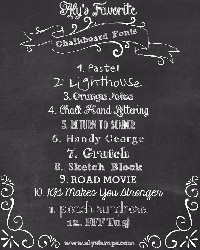 Elly's Favorite
Chalkboard Fonts
1. Pastel
2. Lighthouse
3. Oranges Juice
4. Chalk Hand Lettering
5. RETURN TO SENDER
6. Handy George
7. Grutch
8. Sketch Block
9. ROAD MOVIE
10. KG Makes You Stronger
11. peach sundress